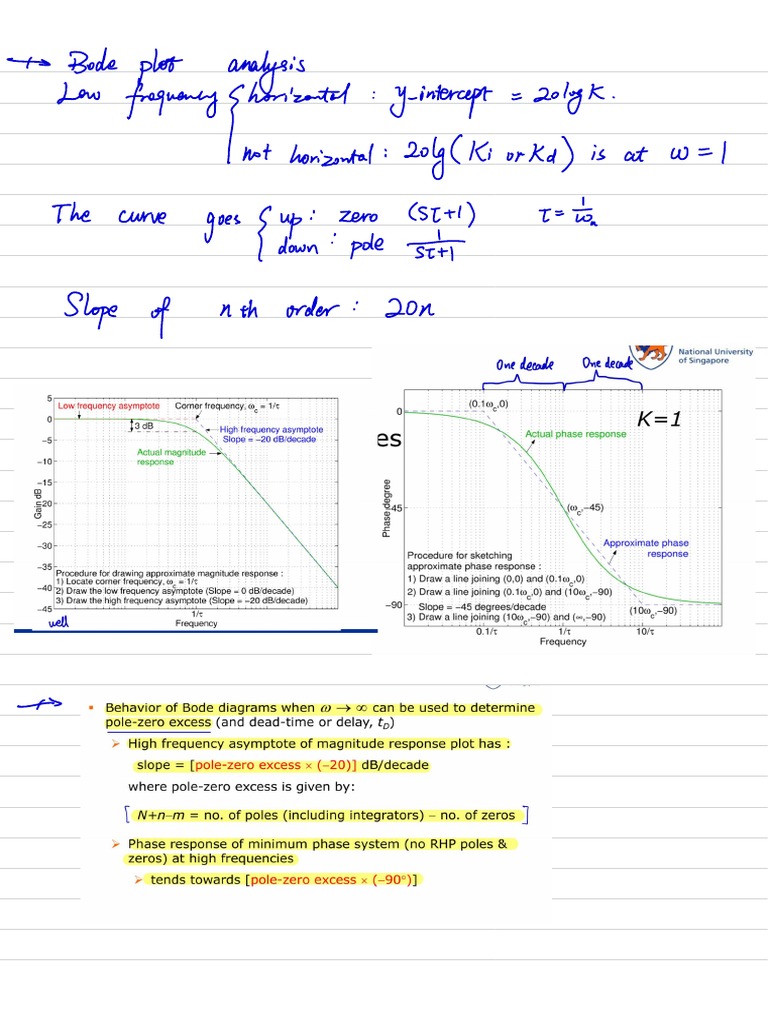 → Bode plot analysis
Low frequency { horizontal : y-intercept = 20 log K.
not horizontal : 20lg(Ki or Kd) is at w = 1
The curve goes { up : zero (Sτ+1) τ = 1/ωn
down : pole 1/(Sτ+1)
Slope of nth order : 20n
National University
of Singapore
One decade One decade
5
0
−5
−10
−15
−20
−25
−30
−35
−40
−45
Gain dB
Low frequency asymptote
Corner frequency, ωc = 1/τ
3 dB
High frequency asymptote
Slope = −20 dB/decade
Actual magnitude
response
Procedure for drawing approximate magnitude response :
1) Locate corner frequency, ωc = 1/τ
2) Draw the low frequency asymptote (Slope = 0 dB/decade)
3) Draw the high frequency asymptote (Slope = −20 dB/decade)
1/τ
Frequency
well
es
0
−45
−90
Phase degree
(0.1ωc,0)
K=1
Actual phase response
(ωc,−45)
Approximate phase
response
Procedure for sketching
approximate phase response :
1) Draw a line joining (0,0) and (0.1ωc,0)
2) Draw a line joining (0.1ωc,0) and (10ωc,−90)
Slope = −45 degrees/decade
3) Draw a line joining (10ωc,−90) and (∞,−90)
(10ωc,−90)
0.1/τ 1/τ 10/τ
Frequency
→
▪ Behavior of Bode diagrams when ω → ∞ can be used to determine
pole-zero excess (and dead-time or delay, tD)
➢ High frequency asymptote of magnitude response plot has :
slope = [pole-zero excess × (−20)] dB/decade
where pole-zero excess is given by:
[ N+n−m = no. of poles (including integrators) − no. of zeros ]
➢ Phase response of minimum phase system (no RHP poles &
zeros) at high frequencies
➢ tends towards [pole-zero excess × (−90°)]